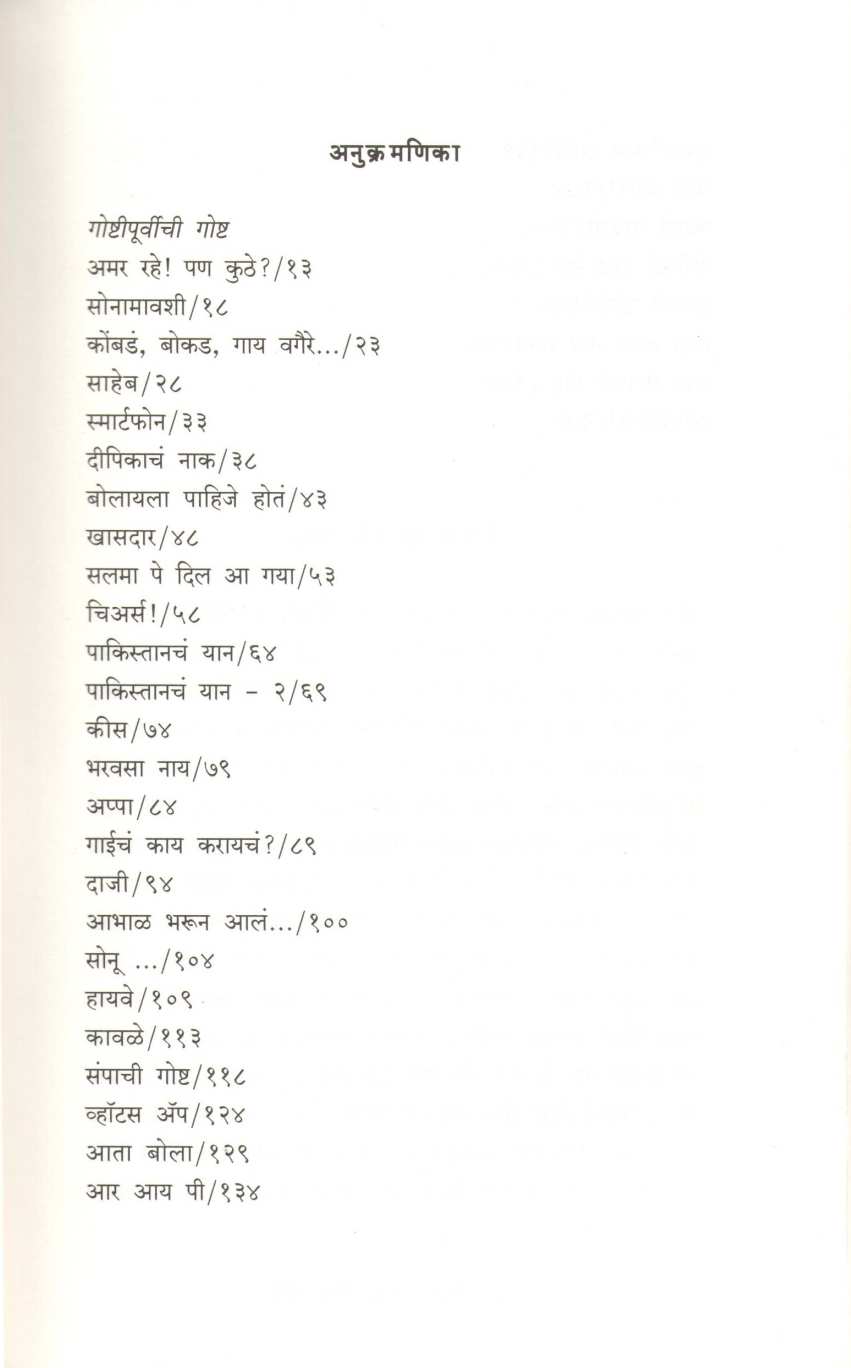 अनुक्रमणिका
गोष्टीपूर्वीची गोष्ट
अमर रहे! पण कुठे?/१३
सोनामावशी/१८
कोंबडं, बोकड, गाय वगैरे.../२३
साहेब/२८
स्मार्टफोन/३३
दीपिकाचं नाक/३८
बोलायला पाहिजे होतं/४३
खासदार/४८
सलमा पे दिल आ गया/५३
चिअर्स!/५८
पाकिस्तानचं यान/६४
पाकिस्तानचं यान - २/६९
कीस/७४
भरवसा नाय/७९
अप्पा/८४
गाईचं काय करायचं?/८९
दाजी/९४
आभाळ भरून आलं.../१००
सोनू .../१०४
हायवे/१०९
कावळे/११३
संपाची गोष्ट/११८
व्हॉटस ॲप/१२४
आता बोला/१२९
आर आय पी/१३४